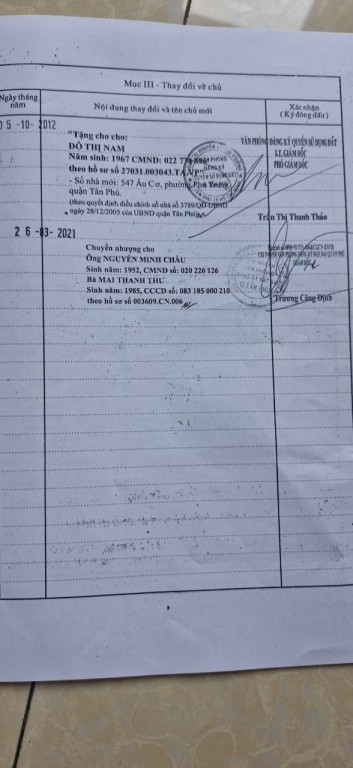 Mục III - Thay đổi về chủ
Ngày tháng năm
Nội dung thay đổi và tên chủ mới
Xác nhận
( Ký đóng dấu )
05 -10- 2012
"Tặng cho cho:
ĐỖ THỊ NAM
Năm sinh: 1967 CMND: 022
theo hồ sơ số 27031.003043.TA.
- Số nhà mới: 547 Âu Cơ, phường Phú Trung,
quận Tân Phú.
(theo quyết định điều chỉnh số nhà số 3789/QĐ-UBND
ngày 28/12/2005 của UBND quận Tân Phú)
VĂN PHÒNG ĐĂNG KÝ QUYỀN SỬ DỤNG ĐẤT
KT. GIÁM ĐỐC
PHÓ GIÁM ĐỐC
Trần Thị Thanh Thảo
26 -03- 2021
Chuyển nhượng cho
Ông NGUYỄN MINH CHÂU
Sinh năm: 1952, CMND số: 020 226 126
Bà MAI THANH THƯ
Sinh năm: 1985, CCCD số: 083 185 000 210
theo hồ sơ số 003609.CN.006
GIÁM ĐỐC
Trương Công Định